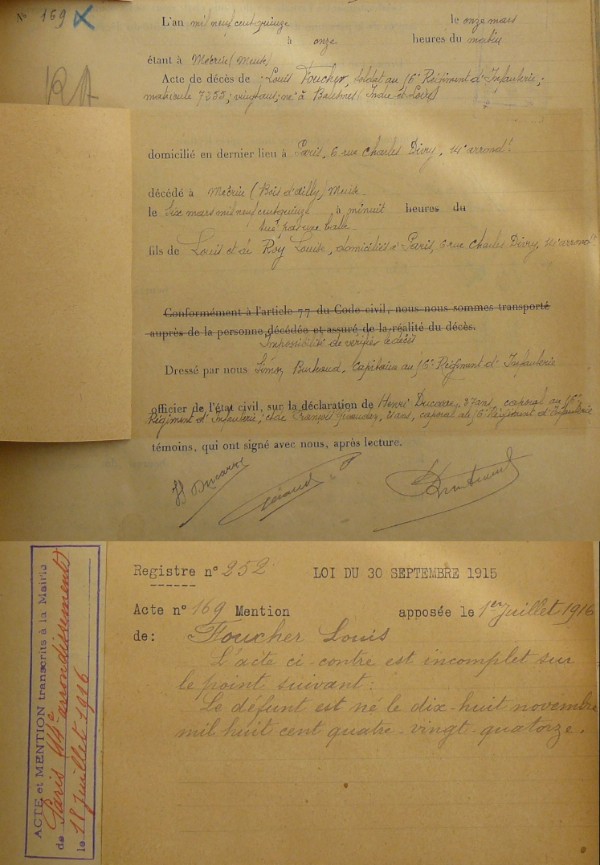 N° 169
L'an mil neuf cent quinze le onze mars
à onze heures du matin
étant à Mécrin (Meuse)
Acte de décès de Louis Foucher, soldat au 16e Régiment d'Infanterie;
matricule 7655; vingt ans; né à (Indre et Loire)
domicilié en dernier lieu à Paris, 6 rue Charles Divry, 14e arrondt
décédé à Mécrin (Bois d'Ailly) Meuse
le dix mars mil neuf cent quinze à minuit heures du
tué par une balle
fils de Louis et de Roy Louise, domiciliés à Paris, 6 rue Charles Divry, 14e arrondt
Conformément à l'article 77 du Code civil, nous nous sommes transporté
auprès de la personne décédée et assuré de la réalité du décès.
Impossibilité de vérifier le décès
Dressé par nous Capitaine au 16e Régiment d'Infanterie
officier de l'état civil, sur la déclaration de Henri Ducarre, 37 ans, caporal au 16e
Régiment d'Infanterie; et de François caporal au 16e Régiment d'Infanterie
témoins, qui ont signé avec nous, après lecture.
H Ducarre
Registre n° 252 LOI DU 30 SEPTEMBRE 1915
Acte n° 169 Mention apposée le 1er Juillet 1916
de: Foucher Louis
L'acte ci-contre est incomplet sur
le point suivant:
Le défunt est né le dix-huit novembre
mil huit cent quatre-vingt-quatorze.
ACTE et MENTION transcrits à la Mairie
de Paris 14e arrondissement
le 18 juillet 1916